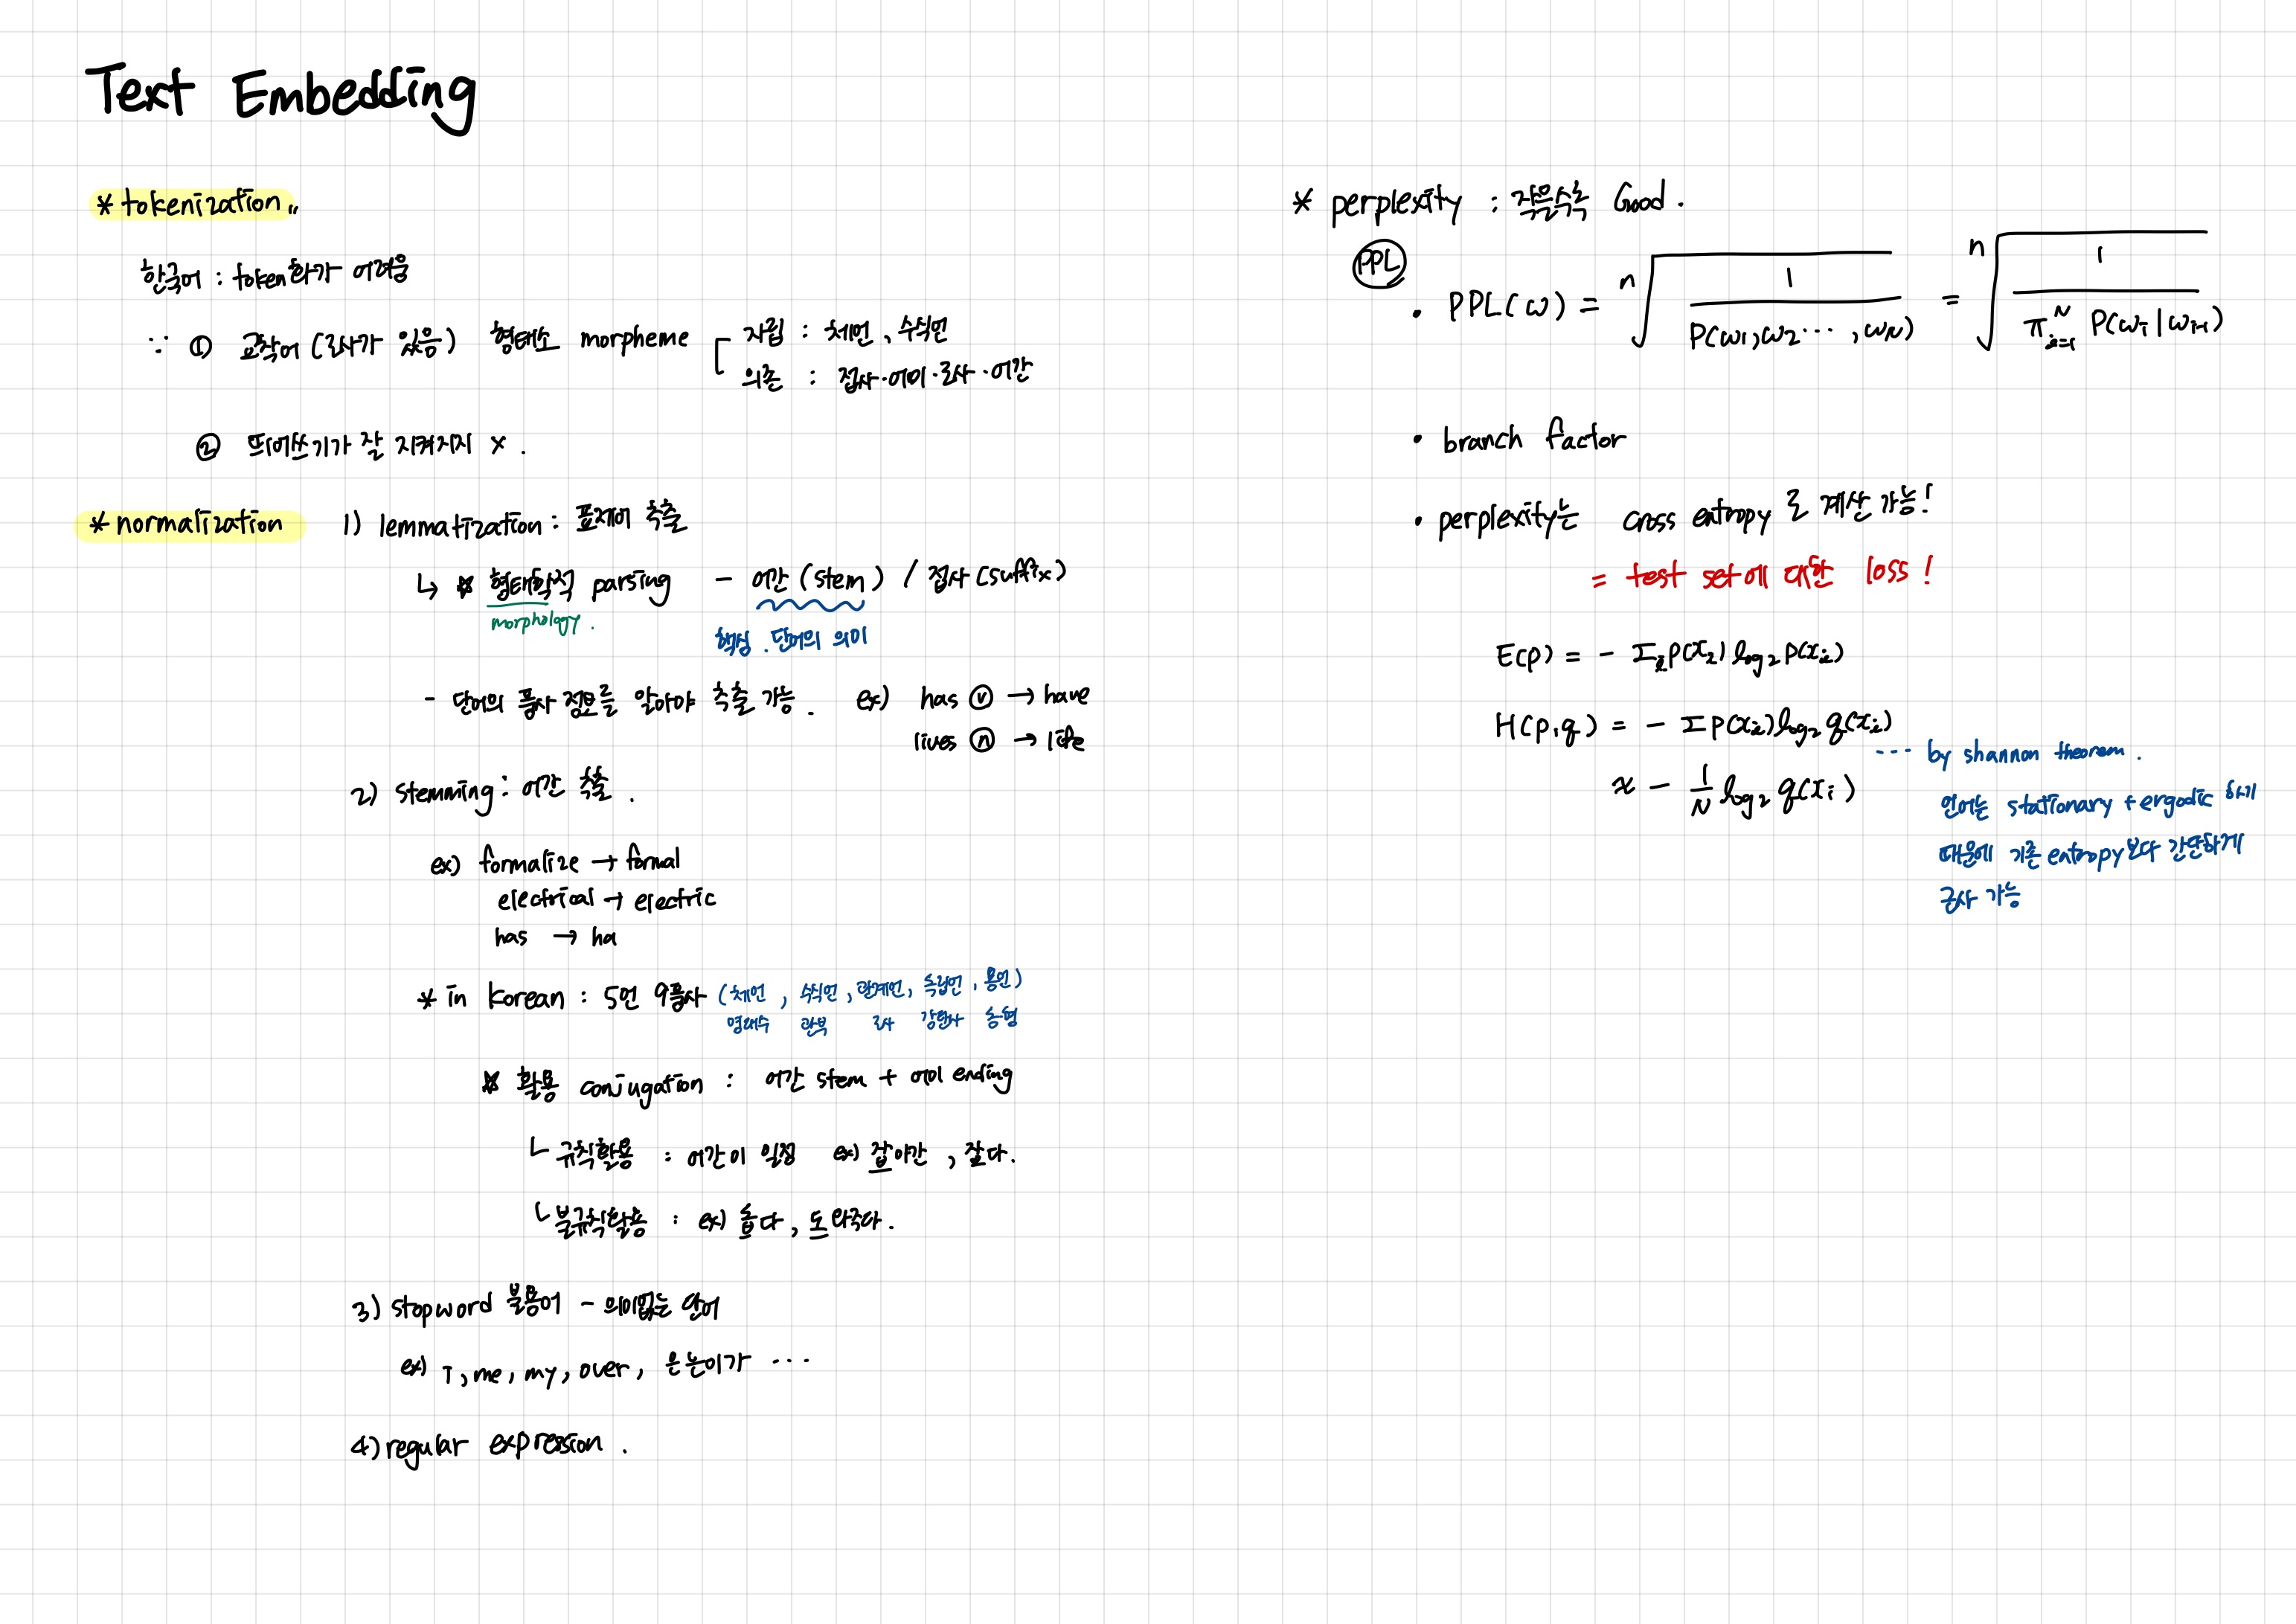 Text Embedding
* tokenization
한국어 : token화가 어려움
∵ ① 교착어 (조사가 있음) 형태소 morpheme
자립 : 체언, 수식언
의존 : 접사·어미·조사·어간
② 띄어쓰기가 잘 지켜지지 x .
* normalization 1) lemmatization : 표제어 추출
↳ ☆ 형태학적 parsing - 어간 (stem) / 접사 (suffix)
morphology .
핵심. 단어의 의미
- 단어의 품사 정보를 알아야 추출 가능. ex) has ⓥ → have
lives ⓝ → life
2) stemming : 어간 추출 .
ex) formalize → formal
electrical → electric
has → ha
* in Korean : 5언 9품사 (체언, 수식언, 관계언, 독립언, 용언)
명대수 관부 조사 감탄사 동형
☆ 활용 conjugation : 어간 stem + 어미 ending
└ 규칙활용 : 어간이 일정 ex) 잡아간, 잡다.
└ 불규칙활용 : ex) 돕다, 도와주다.
3) stopword 불용어 - 의미없는 단어
ex) I, me, my, over, 은는이가 ...
4) regular expression .
* perplexity : 작을수록 Good .
PPL
• PPL(w) = ⁿ√(1 / P(w1,w2 ⋯ ,wN)) = ⁿ√(1 / π_{i=1}^{N} P(wi | wi-1))
• branch factor
• perplexity는 cross entropy 로 계산 가능!
= test set에 대한 loss !
E(p) = - Σi p(xi) log2 p(xi)
H(p,q) = - Σ p(xi) log2 q(xi)
≈ - 1/N log2 q(xi)
--- by shannon theorem .
언어는 stationary + ergodic 하기
때문에 기존 entropy 보다 간단하게
근사 가능